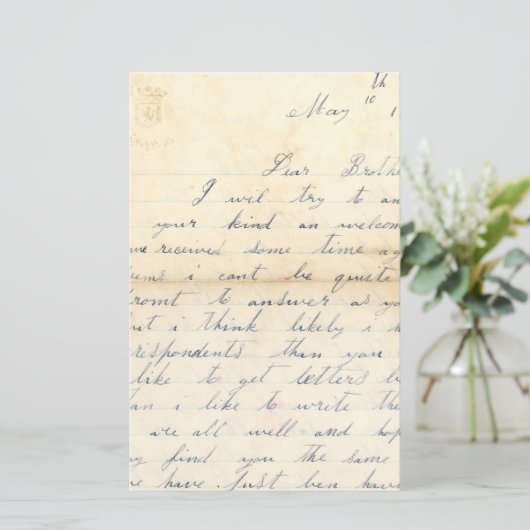 th
May 10 1
Dear Brothe
I wil try to an
your kind an welcom
we received some time ag
ems i cant be quite
romt to answer as yo
but i think likely i h
respondents than you
like to get letters b
an i like to write the
are all well and hop
y find you the same
ve have Just ben hav